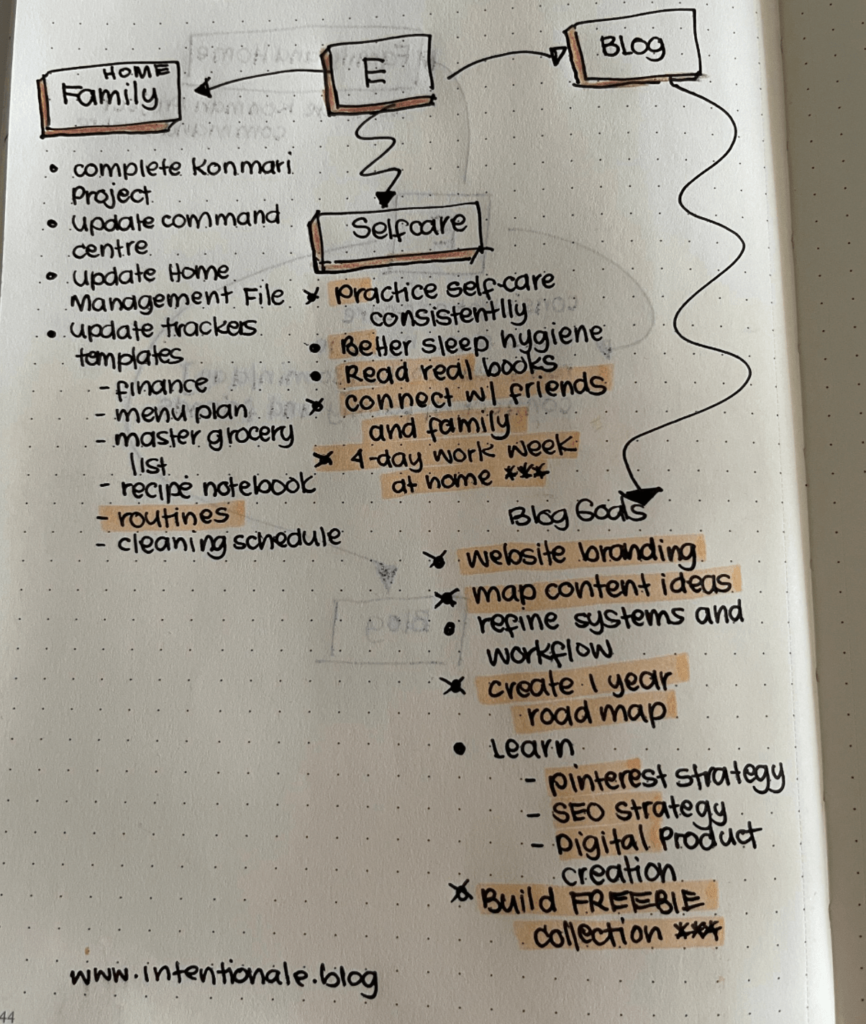 E
HOME
Family
• complete Konmari
Project
• update command
centre
• update Home
Management File
• update trackers
templates
- finance
- menu plan
- master grocery
list
- recipe notebook
- routines
- cleaning schedule
Selfcare
x Practice self-care
consistentlly
• Better sleep hygiene
• Read real books
x connect w/ friends
and family
x 4-day work week
at home ***
Blog
Blog Goals
x website branding
x map content ideas
• refine systems and
workflow
x create 1 year
road map
• Learn
- pinterest strategy
- SEO strategy
- Digital Product
creation
x Build FREEBIE
collection ***
www.intentionale.blog
44